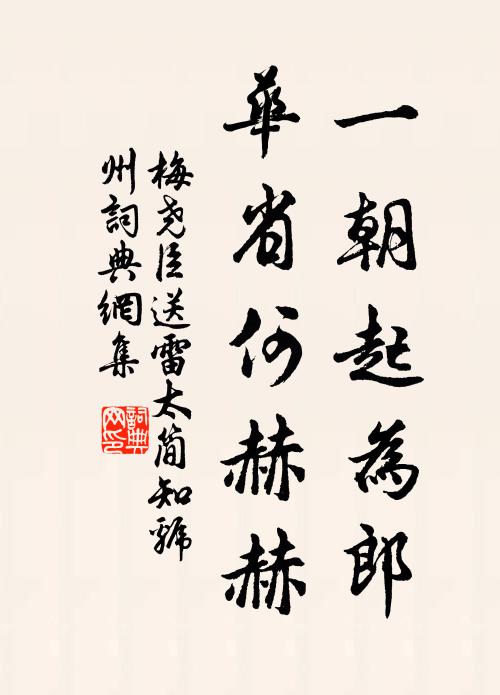 一朝起為郎
華省何赫赫
梅堯臣送雷太簡知虢
州詞典網集
詞典网印